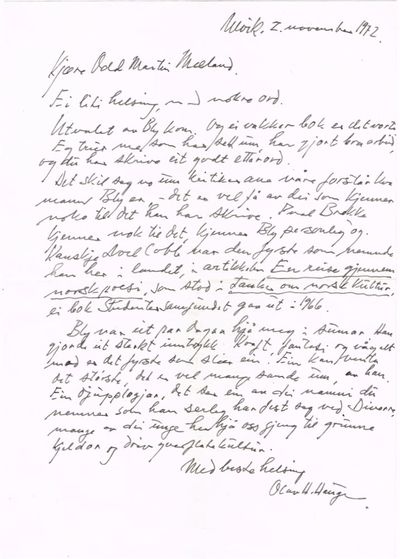 Ulvik, 2. november 1972.
Kjære Odd Martin Mæland.
Ei lita helsing, med nokre ord.
Utvalet av Bly kom. Og ei vakker bok er det vorte.
Eg trur me, som har sett um, har gjort bra arbeid,
og du har skrive eit godt etterord.
Det skil seg no um kritikarane våre forstår kva
mann Bly er, det er vel få av dei som kjenner
noko til det han har skrive. Paal Brekke
kjenner nok til det, kjenner Bly personleg og.
Kanskje Noel Cobb var den fyrste som nemnde
han her i landet, i artikkelen En reise gjennom
norsk poesi, som stod i Tanker om norsk kultur,
ei bok Studentersamfundet gav ut i 1966.
Bly var eit par dagar hjå meg i sumar. Han
gjorde eit sterkt inntrykk. Kraft, fantasi og vågalt
mod er det fyrste som slær ein. Ein kan vente
det største, det er vel mange sanne um, av han.
Ein djuplodjar, det ser ein av dei namni du
nemner som han serleg har dest seg ved. Diverre,
mange av dei unge her hjå oss gjeng til grunne
kjeldor og driv overflatekultur.
Med beste helsing
Olav H. Hauge